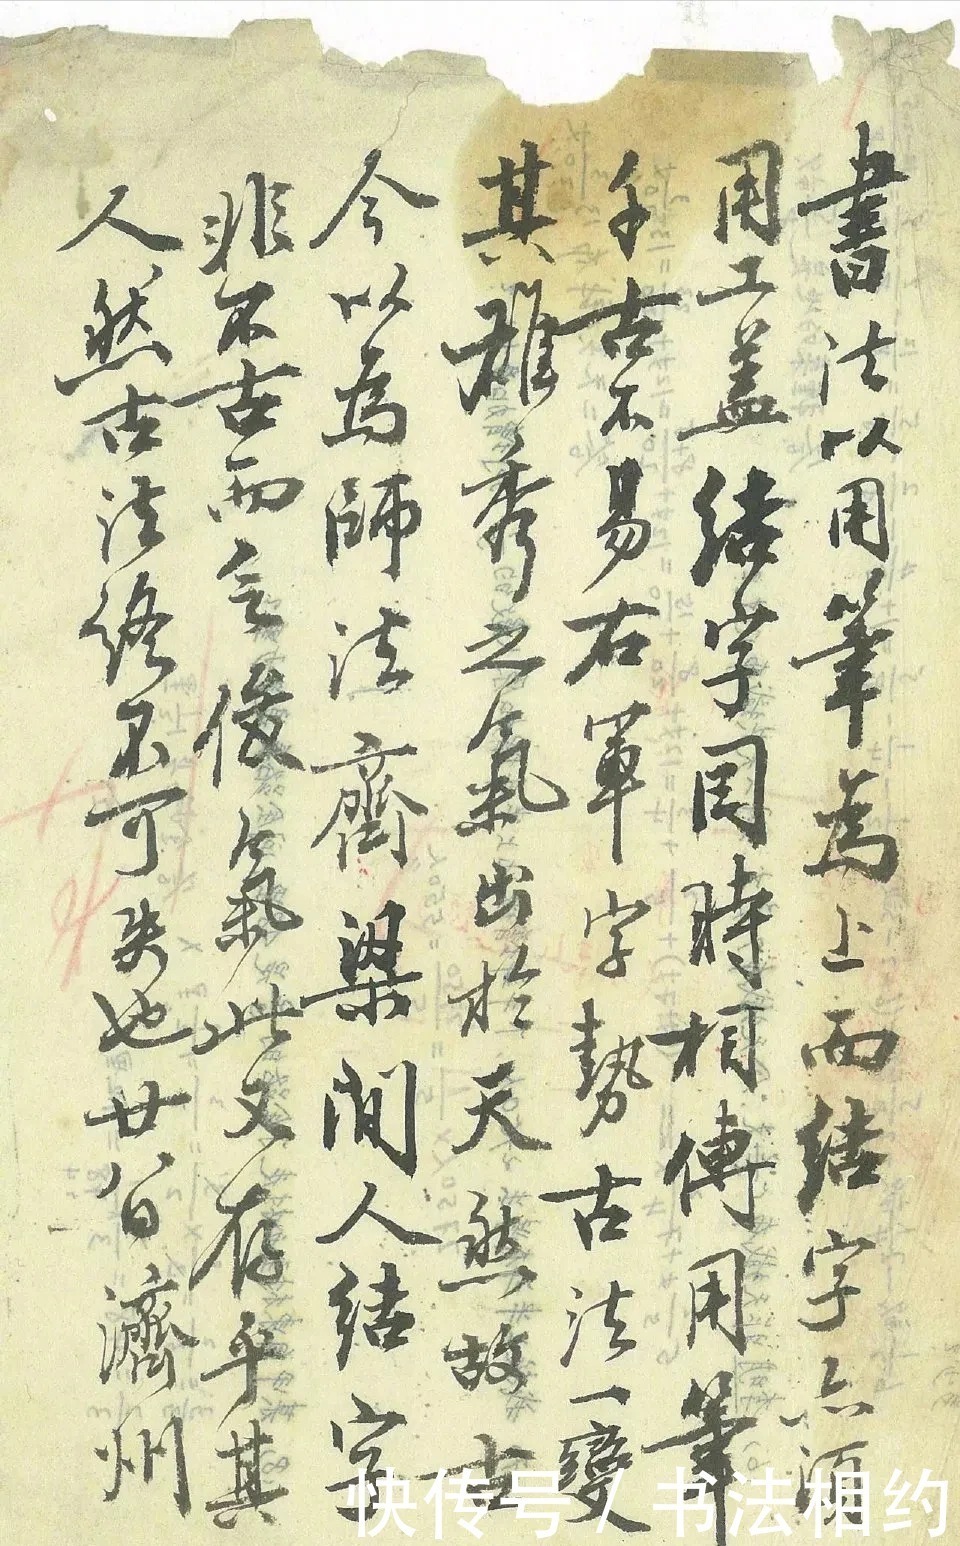 書法以用筆為上而結字亦須
用工盖結字因時相傳用筆
千古不易右軍字勢古法一變
其雄秀之氣出於天然故古
今以為師法齊梁間人結字
非不古而乏俊氣此又存乎其
人然古法終不可失也廿八日濟州
快传号 / 书法相约